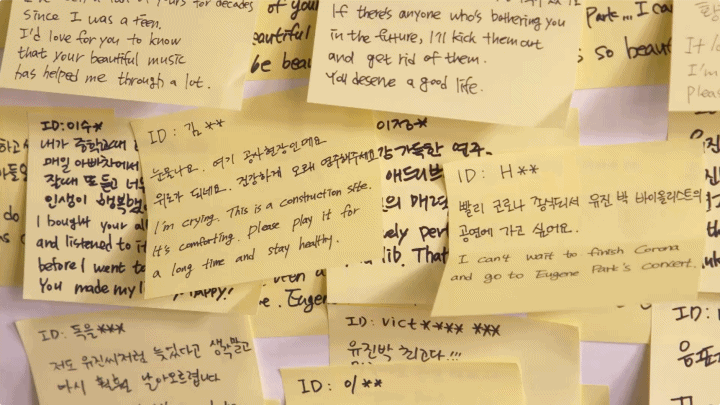 of yours for decades
since I was a teen.
I'd love for you to know
that your beautiful music
has helped me through a lot.
of your
beautiful
be beau
If there's anyone who's bothering you
in the future, I'll kick them out
and get rid of them.
You deserve a good life.
Park... I ca
so beau
I'm
pleas
ID: 이수*
내가 중학교때
매일 아빠차에서
잘때 또 듣고
인생이 행복했
I bought your al
and listened to it
before I went to
You made my li
happy!
ID: 김**
눈물나요. 여기 공사현장인데요
위로가 되네요. 건강하게 오래 연주해주세요
I'm crying. This is a construction site.
It's comforting. Please play it for
a long time and stay healthy.
이정*
가득한 연주.
애드리브
의 매력
ly perf
lib. That
Eugene
ID: H**
빨리 코로나 종식되서 유진 박 바이올리스트의
공연에 가고 싶어요.
I can't wait to finish Corona
and go to Eugene Park's concert.
ID: 독을***
저도 유진씨처럼 늦었다고 생각말고
다시 훨훨 날아오르렵니다
ID: vict**** ***
유진박 최고다!!!
ID: 이**
ID: